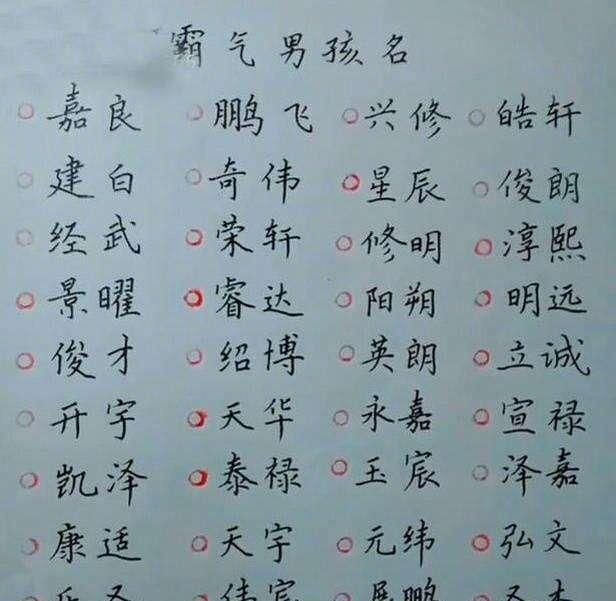 霸气男孩名
嘉良 鹏飞 兴修 皓轩
建白 奇伟 星辰 俊朗
经武 荣轩 修明 淳熙
景曜 睿达 阳朔 明远
俊才 绍博 英朗 立诚
开宇 天华 永嘉 宣禄
凯泽 泰禄 玉宸 泽嘉
康适 天宇 元纬 弘文